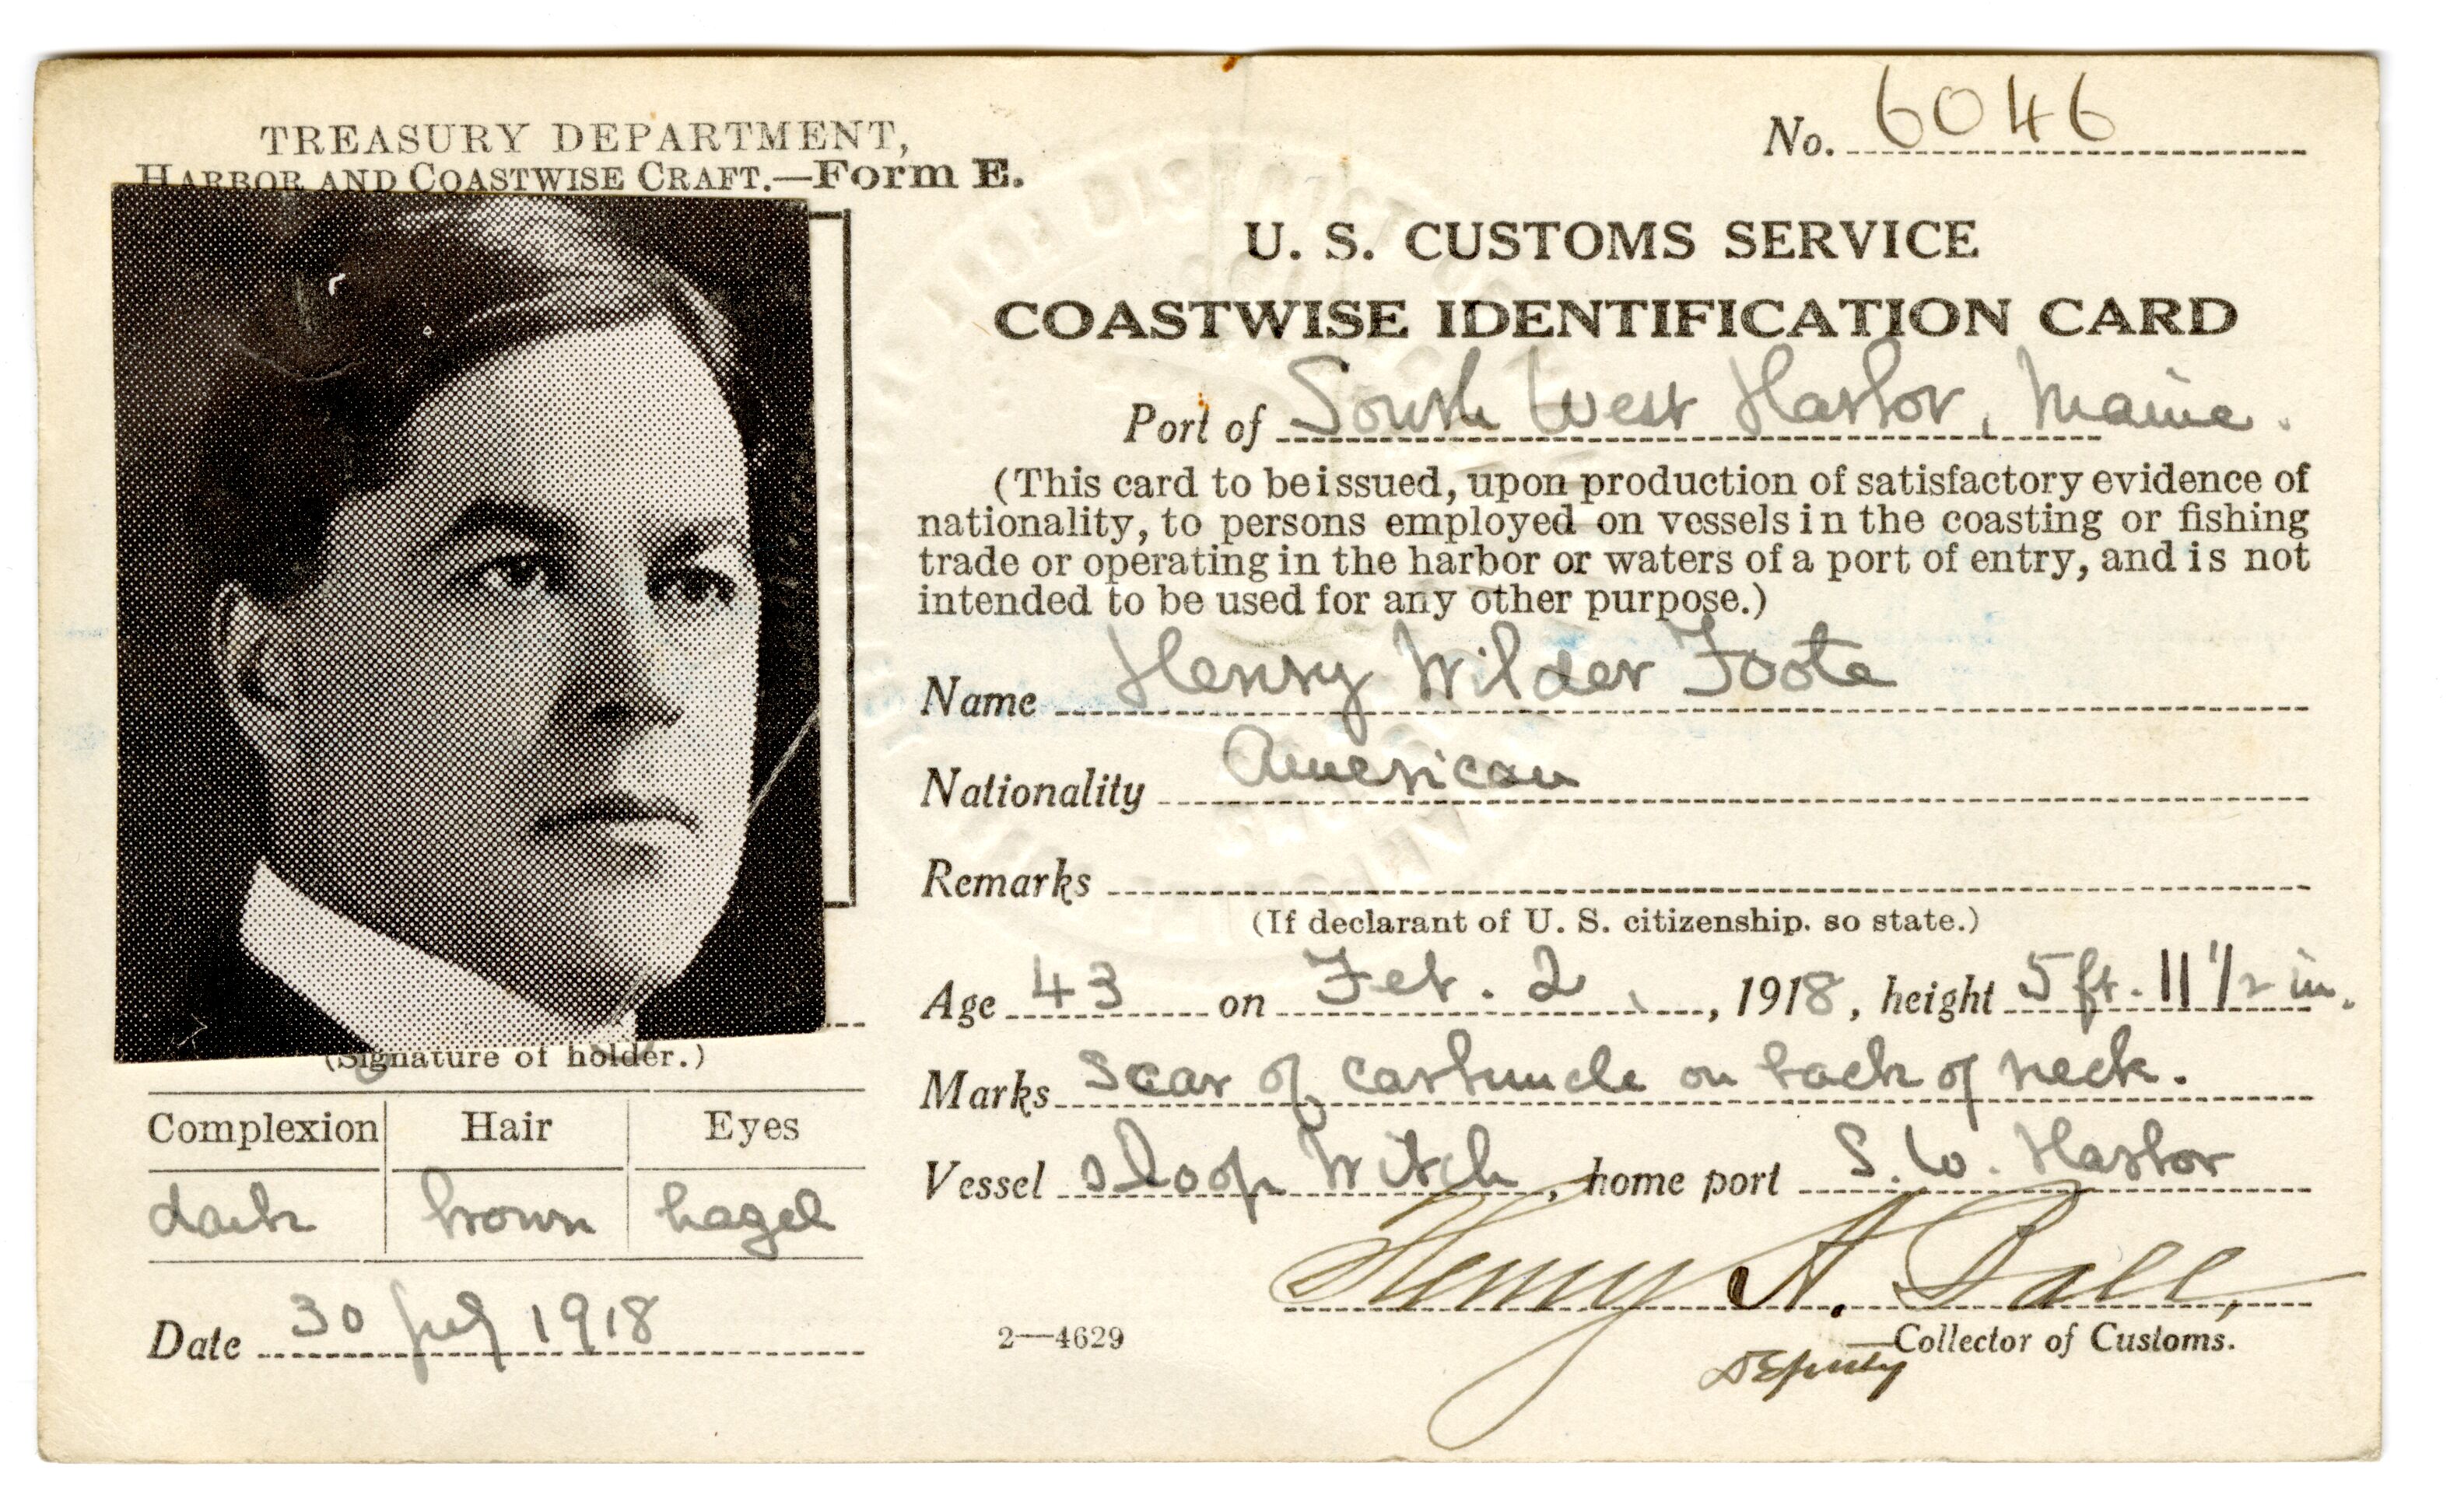 TREASURY DEPARTMENT,
HARBOR AND COASTWISE CRAFT.—Form E.
No. 6046
U. S. CUSTOMS SERVICE
COASTWISE IDENTIFICATION CARD
Port of South West Harbor, Maine.
(This card to be issued, upon production of satisfactory evidence of
nationality, to persons employed on vessels in the coasting or fishing
trade or operating in the harbor or waters of a port of entry, and is not
intended to be used for any other purpose.)
Name Henry Wilder Foote
Nationality American
Remarks
(If declarant of U. S. citizenship. so state.)
Age 43 on Feb. 2, 1918, height 5 ft. 11 1/2 in.
Marks Scar of carbuncle on back of neck.
Vessel sloop Witch, home port S. W. Harbor
Henry A. Ball,
Deputy Collector of Customs.
(Signature of holder.)
Complexion Hair Eyes
dark brown hazel
Date 30 July 1918
2—4629